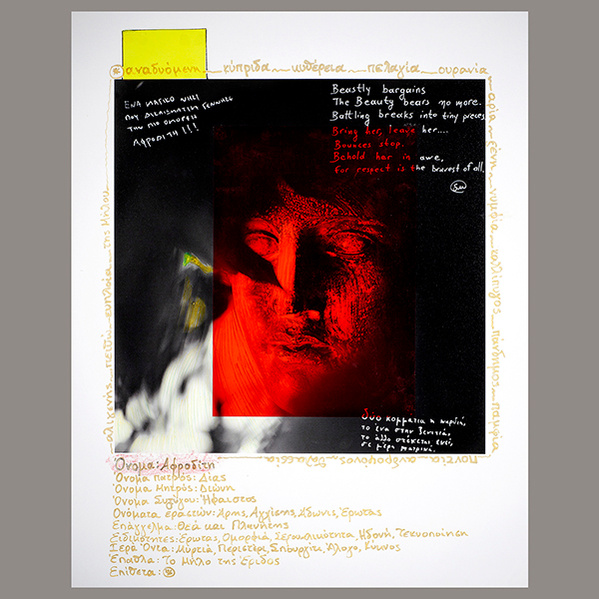 αναδυόμενη ~ κύπριδα ~ κυθέρεια ~ πελαγία ~ ουρανία
Beastly bargains
The Beauty bears no more.
Battling breaks into tiny pieces
Bring her, leave her....
Bounces stop.
Behold her in awe,
for respect is the bravest of all.
ΕΝΑ ΜΑΓΙΚΟ ΝΗΣΙ
ΠΟΥ
ΤΗΝ ΠΙΟ ΟΜΟΡΦΗ
ΑΦΡΟΔΙΤΗ !!!
της Μήλου
πάνδημος
Δύο κομματια η καρδιά,
το ένα στην Βενετιά
το άλλο στέκεται εκεί,
σε μέρη μακρινά.
Όνομα: Αφροδίτη
Όνομα Πατρός: Δίας
Όνομα Μητρός: Διώνη
Όνομα Συζύγου: Ήφαιστος
Ονόματα εραστών: Άρης, Αγχίσης, Άδωνις, Έρωτας
Επάγγελμα: Θεά και Πλανήτης
Ειδικότητες: Έρωτας, Ομορφιά, Σεξουαλικότητα, Ηδονή, Τεκνοποίηση
Ιερά Όντα: Μυρτιά, Περιστέρι, Σπουργίτι, Άλογο, Κύκνος
Έπαθλα: Το Μήλο της Έριδος
Επίθετα: